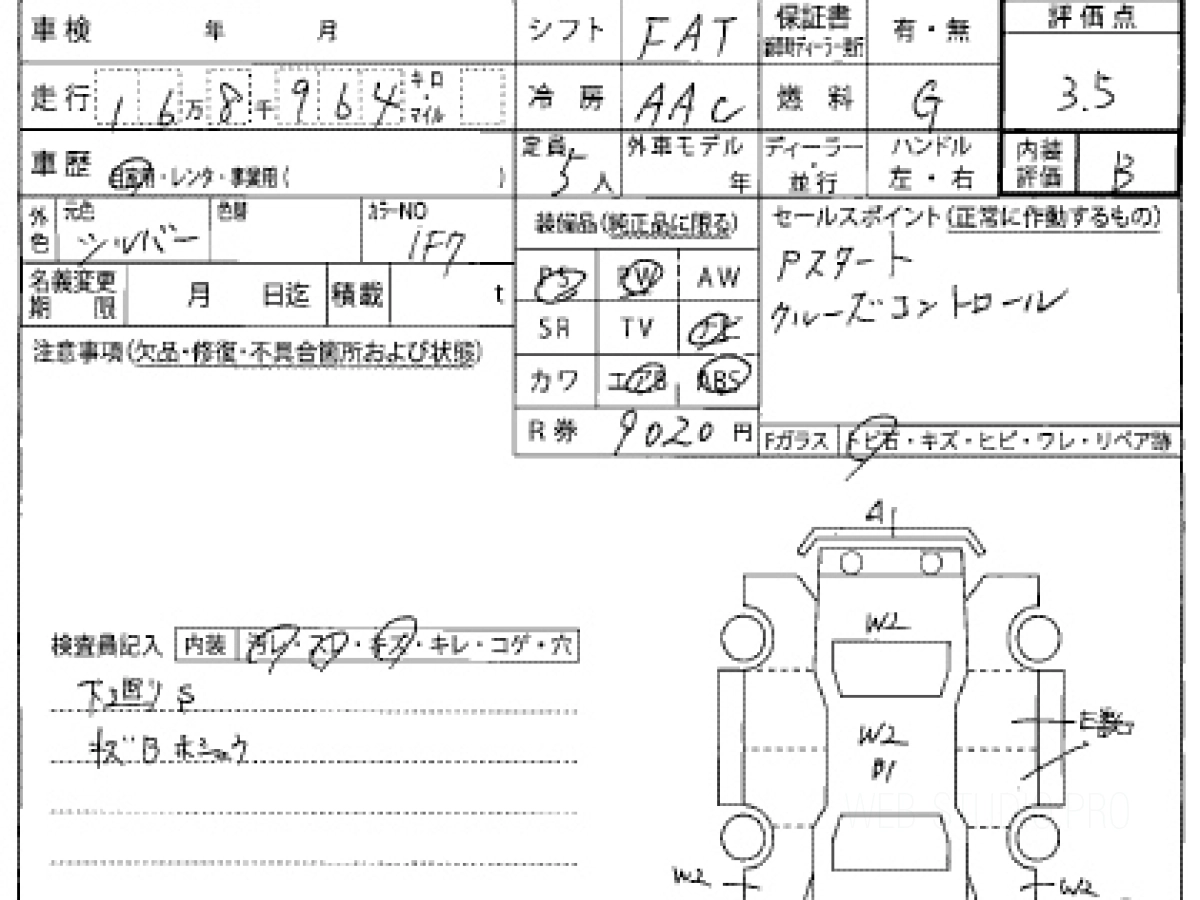 車検 年 月 シフト FAT 保証書 有・無 評価点
走行 16万8千964 キロ・マイル 冷房 AAC 燃料 G 3.5
車歴 自家用・レンタ・事業用( ) 定員 5人 外車モデル 年 ディーラー・並行 ハンドル 左・右 内装評価 B
外色 元色 シルバー 色替 カラーNO 1F7 装備品(純正品に限る) セールスポイント(正常に作動するもの)
PS PW AW Pスタート
名義変更期限 月 日迄 積載 t クルーズコントロール
SR TV ナビ
注意事項(欠品・修復・不具合箇所および状態)
カワ エアB ABS
R券 9020円 Fガラス トビ石・キズ・ヒビ・ワレ・リペア跡
A1
W2
検査員記入 内装 汚レ・スレ・キズ・キレ・コゲ・穴
下回り S
キズ B ホシュウ
W2
B1
WEB STUDIO PRO
W2 W2